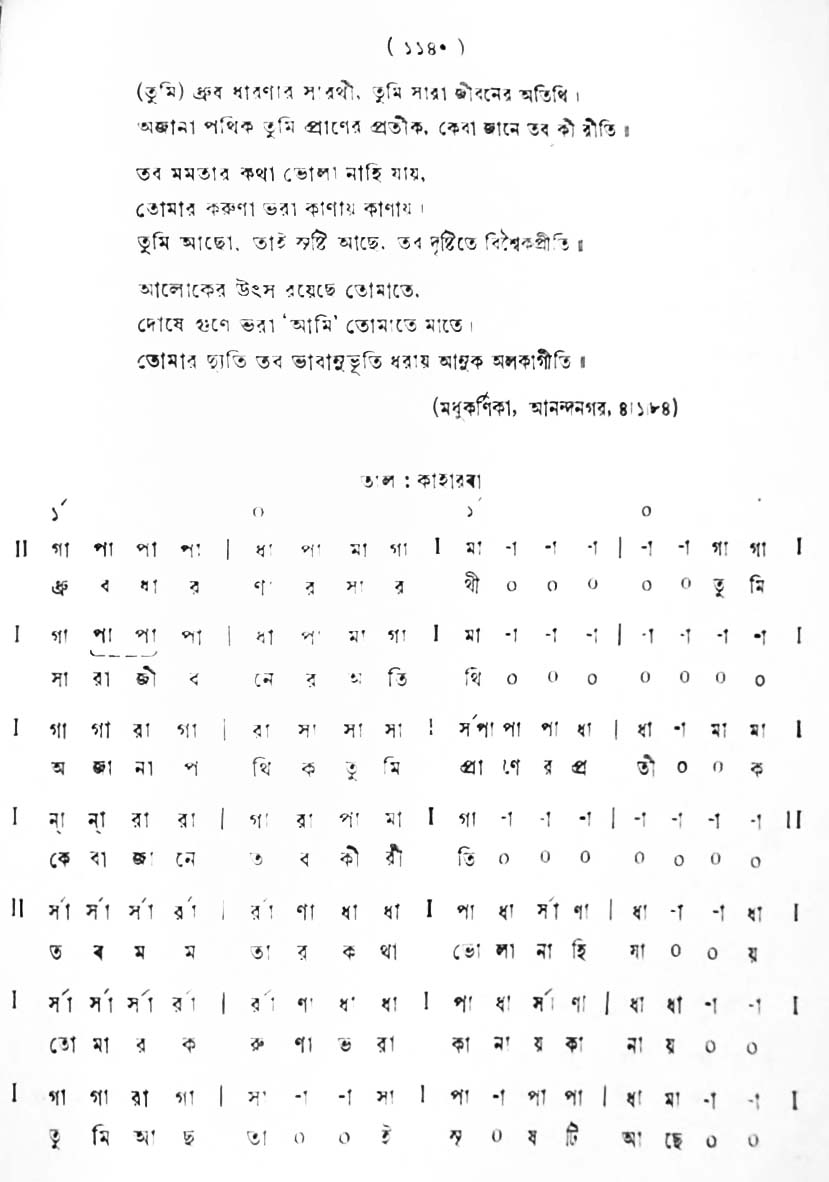 ( ১১৪০ )
(তুমি) ধ্রুব ধারণার সারথী, তুমি সারা জীবনের অতিথি ।
অজানা পথিক তুমি প্রাণের প্রতীক, কেবা জানে তব কী রীতি ॥
তব মমতার কথা ভোলা নাহি যায়,
তোমার করুণা ভরা কাণায় কাণায় ।
তুমি আছো, তাই সৃষ্টি আছে, তব দৃষ্টিতে বিশ্বৈকপ্রীতি ॥
আলোকের উৎস রয়েছে তোমাতে,
দোষে গুণে ভরা ‘আমি’ তোমাতে মাতে ।
তোমার দ্যুতি তব ভাবানুভূতি ধরায় আনুক অলকাগীতি ॥
(মধুকর্ণিকা, আনন্দনগর, ৪।১।৮৪)
তাল : কাহারবা
১´ ০ ১´ ০
II গা পা পা পা | ধা পা মা গা I মা -া -া -া | -া -া গা গা I
ধ্রু ব ধা র ণা র সা র থী ০ ০ ০ ০ ০ তু মি
I গা পা পা পা | ধা পা মা গা I মা -া -া -া | -া -া -া -া I
সা রা জী ব নে র অ তি থি ০ ০ ০ ০ ০ ০ ০
I গা গা রা গা | রা সা সা সা I র্সপা পা পা ধা | ধা -া মা মা I
অ জা না প থি ক তু মি প্রা ণে র প্র তী ০ ০ ক
I ন্া ন্া রা রা | গা রা পা মা I গা -া -া -া | -া -া -া -া II
কে বা জা নে ত ব কী রী তি ০ ০ ০ ০ ০ ০ ০
II র্সা র্সা র্সা র্রা | র্রা ণা ধা ধা I পা ধা র্সা ণা | ধা -া -া ধা I
ত ব ম ম তা র ক থা ভো লা না হি যা ০ ০ য়
I র্সা র্সা র্সা র্রা | র্রা ণা ধা ধা I পা ধা র্সা ণা | ধা ধা -া -া I
তো মা র ক রু ণা ভ রা কা না য় কা না য় ০ ০
I গা গা রা গা | সা -া -া সা I পা -া পা পা | ধা মা -া -া I
তু মি আ ছ তা ০ ০ ই সৃ ০ ষ টি আ ছে ০ ০